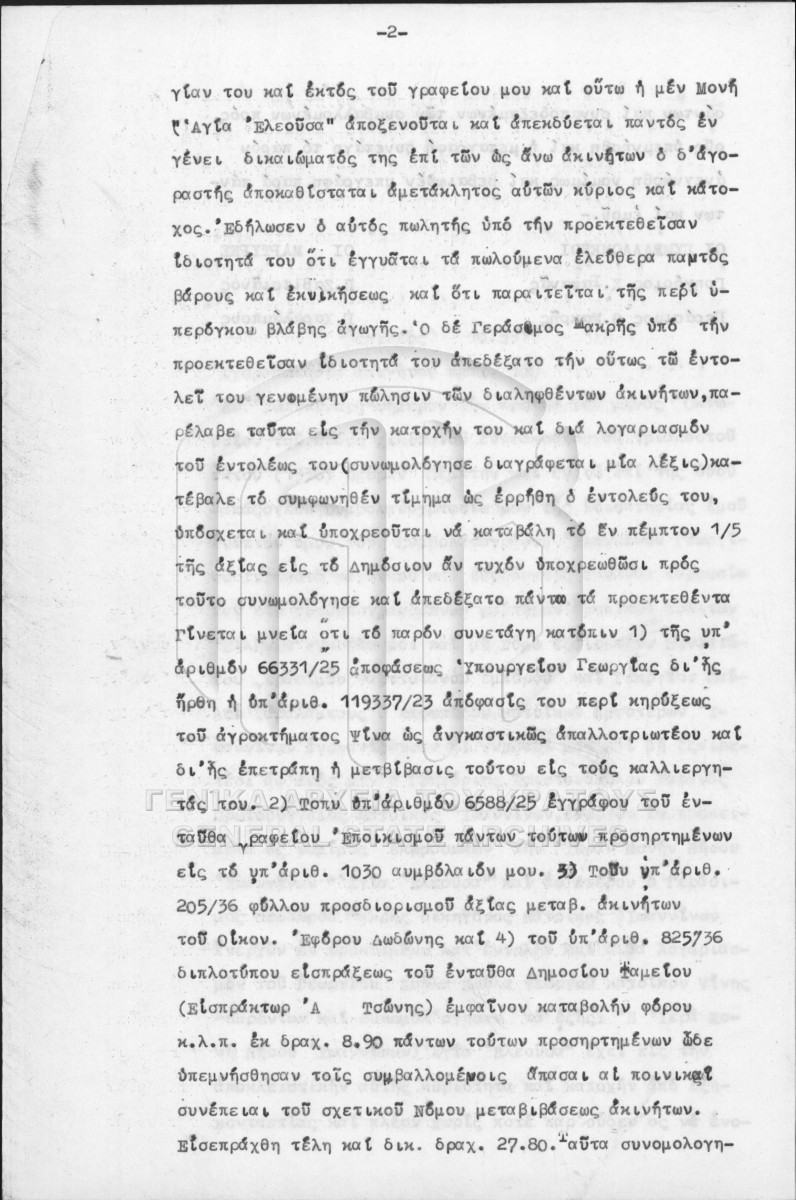 -2-
γίαν του καί ἐκτός τοῦ γραφείου μου καί οὕτω ἡ μέν Μονή
"Ἁγία Ἐλεοῦσα" ἀποξενοῦται καί ἀπεκδύεται παντός ἐν
γένει δικαιώματός της ἐπί τῶν ὡς ἄνω ἀκινήτων ὁ δ'ἀγο-
ραστής ἀποκαθίσταται ἀμετάκλητος αὐτῶν κύριος καί κάτο-
χος. Ἐδήλωσεν ὁ αὐτός πωλητής ὑπό τήν προεκτεθεῖσαν
ἰδιοτητά του ὅτι ἐγγυᾶται τά πωλούμενα ἐλεύθερα παντός
βάρους καί ἐκνικήσεως καί ὅτι παραιτεῖται τῆς περί ὑ-
περόγκου βλάβης ἀγωγῆς. Ὁ δέ Γεράσιμος Μακρῆς ὑπό τήν
προεκτεθεῖσαν ἰδιοτητά του ἀπεδέξατο τήν οὕτως τῶ ἐντο-
λεῖ του γενομένην πώλησιν τῶν διαληφθέντων ἀκινήτων,πα-
ρέλαβε ταῦτα εἰς τήν κατοχήν του καί διά λογαριασμόν
τοῦ ἐντολέως του(συνωμολόγησε διαγράφεται μία λέξις)κα-
τέβαλε τό συμφωνηθέν τίμημα ὡς ἐρρήθη ὁ ἐντολεύς του,
ὑπόσχεται καί ὑποχρεοῦται νά καταβάλη τό ἕν πέμπτον 1/5
τῆς ἀξίας εἰς τό Δημόσιον ἄν τυχόν ὑποχρεωθῶσι πρός
τοῦτο συνωμολόγησε καί ἀπεδέξατο πάντα τά προεκτεθέντα
Γίνεται μνεία ὅτι τό παρόν συνετάγη κατόπιν 1) τῆς ὑπ'
ἀριθμόν 66331/25 ἀποφάσεως Ὑπουργείου Γεωργίας δι'ἧς
ἤρθη ἡ ὑπ'ἀριθ. 119337/23 ἀπόφασίς του περί κηρύξεως
τοῦ ἀγροκτήματος Ψίνα ὡς ἀνγκαστικῶς ἀπαλλοτριωτέου καί
δι'ἧς ἐπετράπη ἡ μετβίβασις τούτου εἰς τούς καλλιεργη-
τάς του. 2) Τοπυ ὑπ'ἀριθμόν 6588/25 ἐγγράφου τοῦ ἐν-
ΓΕΝΙΚΑ ΑΡΧΕΙΑ ΤΟΥ ΚΡΑΤΟΥΣ
ταῦθα γραφείου Ἐποικισμοῦ πάντων τούτων προσηρτημένων
GENERAL STATE ARCHIVES
εἰς τό ὑπ'ἀριθ. 1030 αυμβόλαιόν μου. 3) Τοῦυ ὑπ'ἀριθ.
205/36 φύλλου προσδιορισμοῦ ἀξίας μεταβ. ἀκινήτων
τοῦ Οἰκον. Ἐφόρου Δωδώνης καί 4) τοῦ ὑπ'ἀριθ. 825736
διπλοτύπου εἰσπράξεως τοῦ ἐνταῦθα Δημοσίου Ταμείου
(Εἰσπράκτωρ Ἀ Τσώνης) ἐμφαῖνον καταβολήν φόρου
κ.λ.π. ἐκ δραχ. 8.90 πάντων τούτων προσηρτημένων ὧδε
ὑπεμνήσθησαν τοῖς συμβαλλομένοις ἅπασαι αἱ ποινικαί
συνέπειαι τοῦ σχετικοῦ Νόμου μεταβιβάσεως ἀκινήτων.
Εἰσεπράχθη τέλη καί δικ. δραχ. 27.80. Ταῦτα συνομολογη-